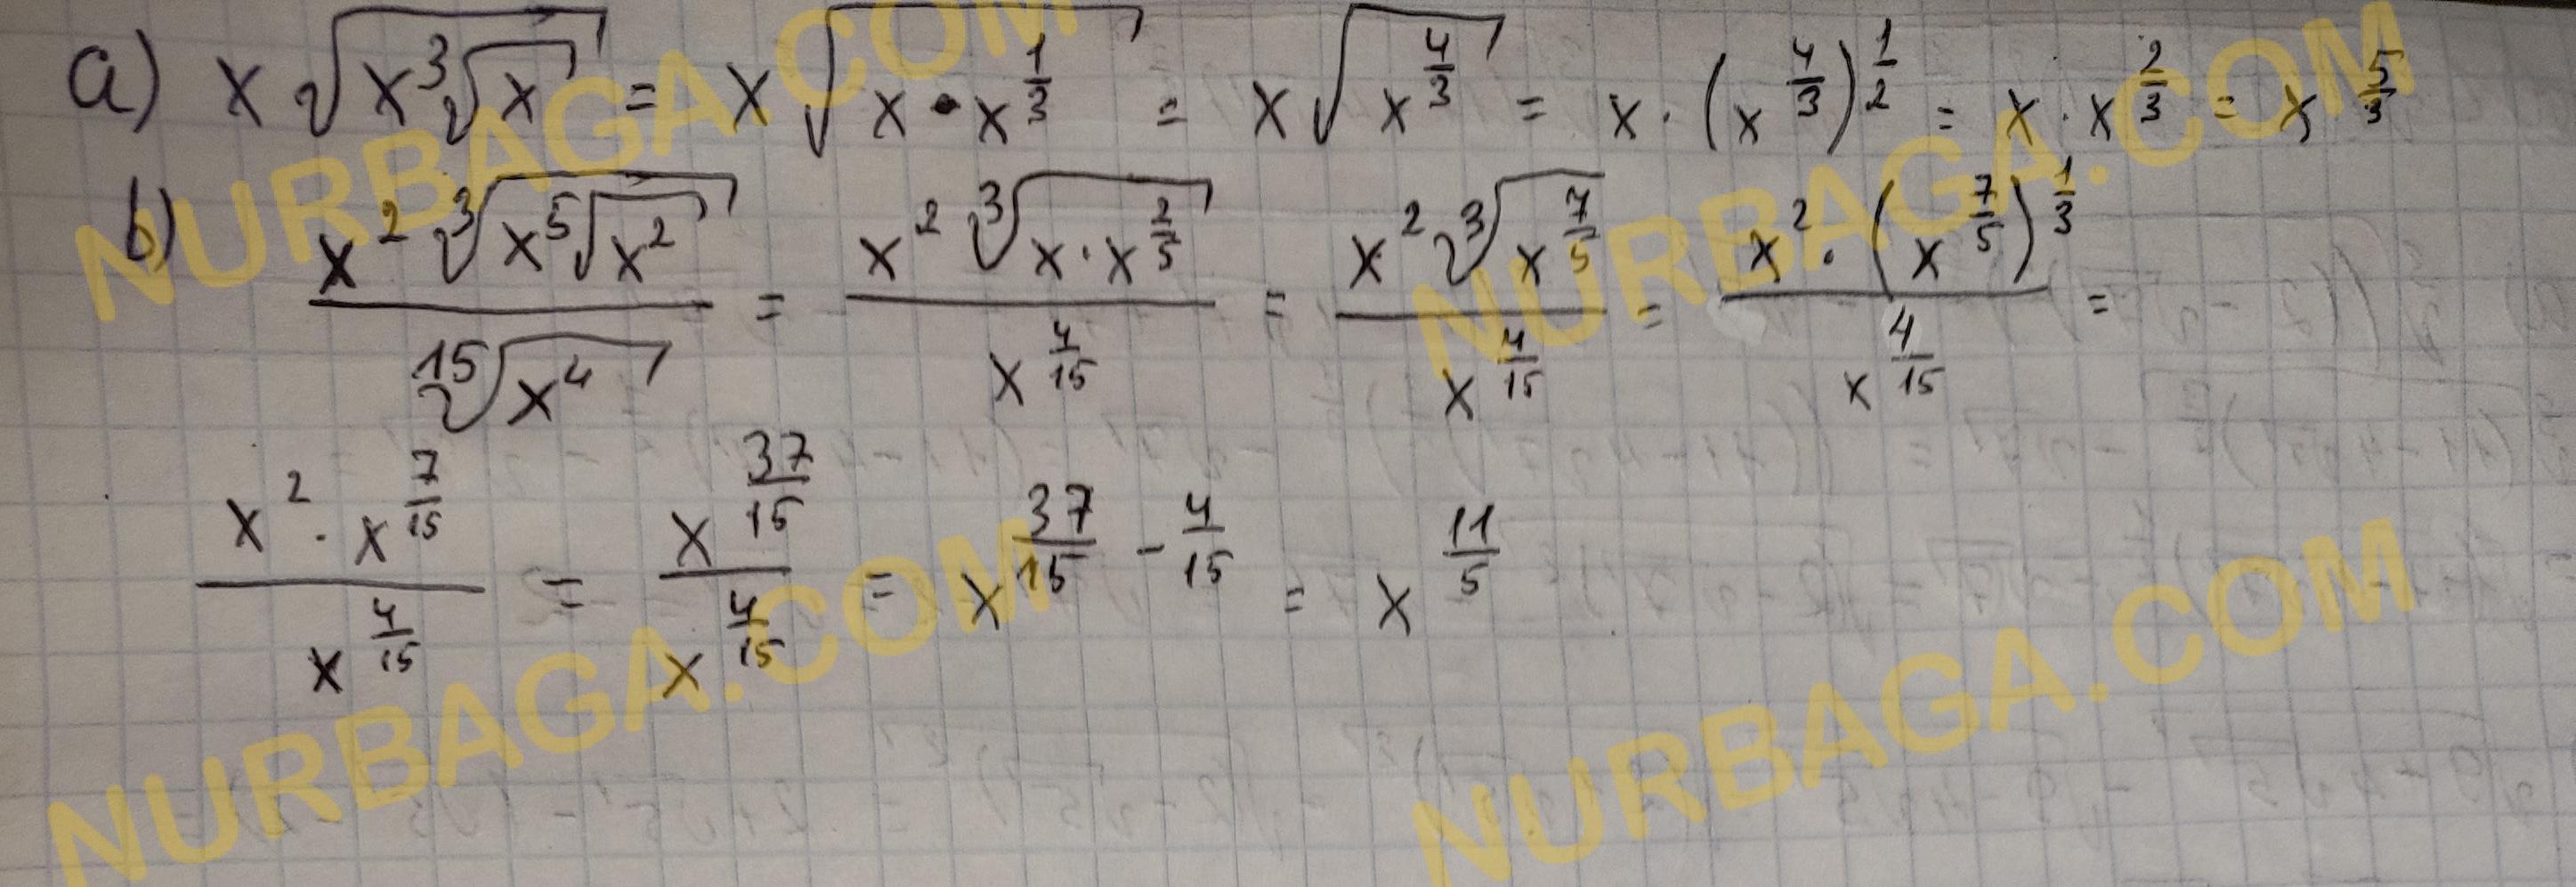 a) x√(x∛(x)) = x√(x · x^(1/3)) = x√(x^(4/3)) = x · (x^(4/3))^(1/2) = x · x^(2/3) = x^(5/3)
b) (x² ∛(x ⁵√(x²))) / (¹⁵√(x⁴)) = (x² ∛(x · x^(2/5))) / (x^(4/15)) = (x² ∛(x^(7/5))) / (x^(4/15)) = (x² · (x^(7/5))^(1/3)) / (x^(4/15)) =
(x² · x^(7/15)) / (x^(4/15)) = (x^(37/15)) / (x^(4/15)) = x^(37/15 - 4/15) = x^(11/5)
NURBAGA.COM
NURBAGA.COM
NURBAGA.COM
NURBAGA.COM